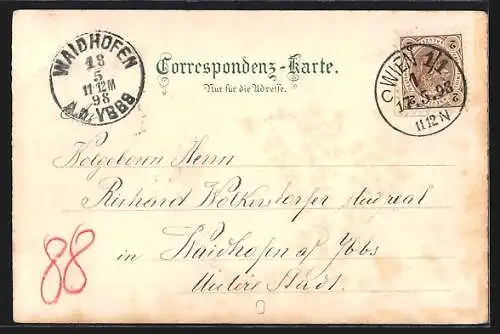 WAIDHOFEN
18
5
11-12M
98
A.D. YBBS
Correspondenz-Karte.
Nur für die Adresse.
WIEN 1/1
1
17.5.98
11 12 N
Wolgeboren Herrn
Richard Wolkerstorfer
in Waidhofen a/ Ybbs
Untere Stadt.
88